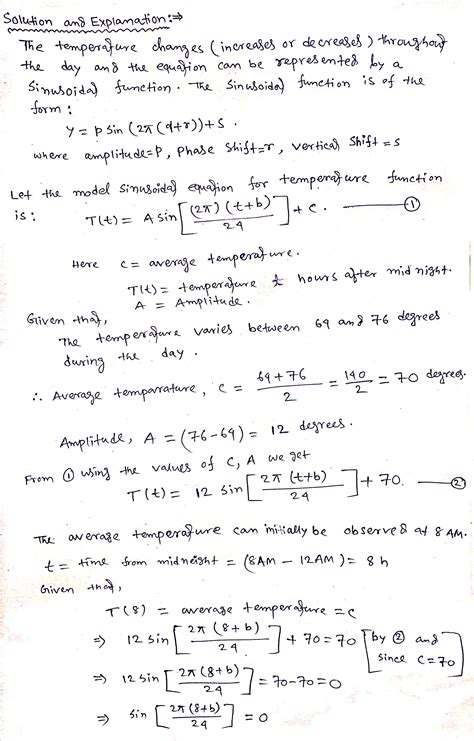 Solution and Explanation:⇒
The temperature changes (increases or decreases) throughout
the day and the equation can be represented by a
Sinusoidal function. The Sinusoidal function is of the
form :
y = p sin (2π(q+r))+s .
where amplitude=p, phase shift=r, vertical shift = s
Let the model sinusoidal equation for temperature function
is : T(t) = A sin[(2π)(t+b)/24] + c. — ①
Here c = average temperature.
T(t) = temperature t hours after mid night.
A = Amplitude.
Given that,
The temperature varies between 64 and 76 degrees
during the day .
∴ Average temparature, c = (64+76)/2 = 140/2 = 70 degrees.
Amplitude, A = (76-64) = 12 degrees.
From ① using the values of C, A we get
T(t) = 12 sin[2π(t+b)/24] + 70. — ②
The average temperature can initially be observed at 8 AM.
t = time from midneight = (8AM – 12AM) = 8 h
Given that,
T(8) = average temperature = c
⇒ 12 sin[2π(8+b)/24] + 70 = 70 [by ② and since c=70]
⇒ 12 sin[2π(8+b)/24] = 70-70 = 0
⇒ sin[2π(8+b)/24] = 0